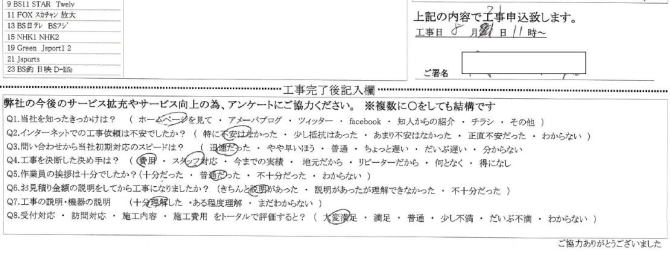 9 BS11 STAR Twelv
11 FOX スカチャン 放大
13 BS日テレ BSフジ
15 NHK1 NHK2
19 Green Jsport1 2
21 Jsports
23 BS釣 日映 D-life
上記の内容で工事申込致します。
工事日 8月21日 11時～
ご署名
工事完了後記入欄
弊社の今後のサービス拡充やサービス向上の為、アンケートにご協力ください。 ※複数に○をしても結構です
Q1.当社を知ったきっかけは？ ( ホームページを見て ・ アメーバブログ ・ ツィッター ・ facebook ・ 知人からの紹介 ・ チラシ ・ その他 )
Q2.インターネットでの工事依頼は不安でしたか？ ( 特に不安はなかった ・ 少し抵抗はあった ・ あまり不安はなかった ・ 正直不安だった ・ わからない )
Q3.問い合わせから当社初期対応のスピードは？ ( 迅速だった ・ やや早いほう ・ 普通 ・ ちょっと遅い ・ だいぶ遅い ・ 分からない
Q4.工事を決断した決め手は？ ( 費用 ・ スタッフ対応 ・ 今までの実績 ・ 地元だから ・ リピーターだから ・ 何となく ・ 得になし
Q5.作業員の挨拶は十分でしたか？(十分だった ・ 普通だった ・ 不十分だった ・ わからない )
Q6.お見積り金額の説明をしてから工事になりましたか？ (きちんと説明があった ・ 説明があったが理解できなかった ・ 不十分だった )
Q7.工事の説明・機器の説明 (十分理解した ・ある程度理解 ・ まだわからない )
Q8.受付対応 ・ 訪問対応 ・ 施工内容 ・ 施工費用 をトータルで評価すると？ ( 大変満足 ・ 満足 ・ 普通 ・ 少し不満 ・ だいぶ不満 ・ わからない )
ご協力ありがとうございました